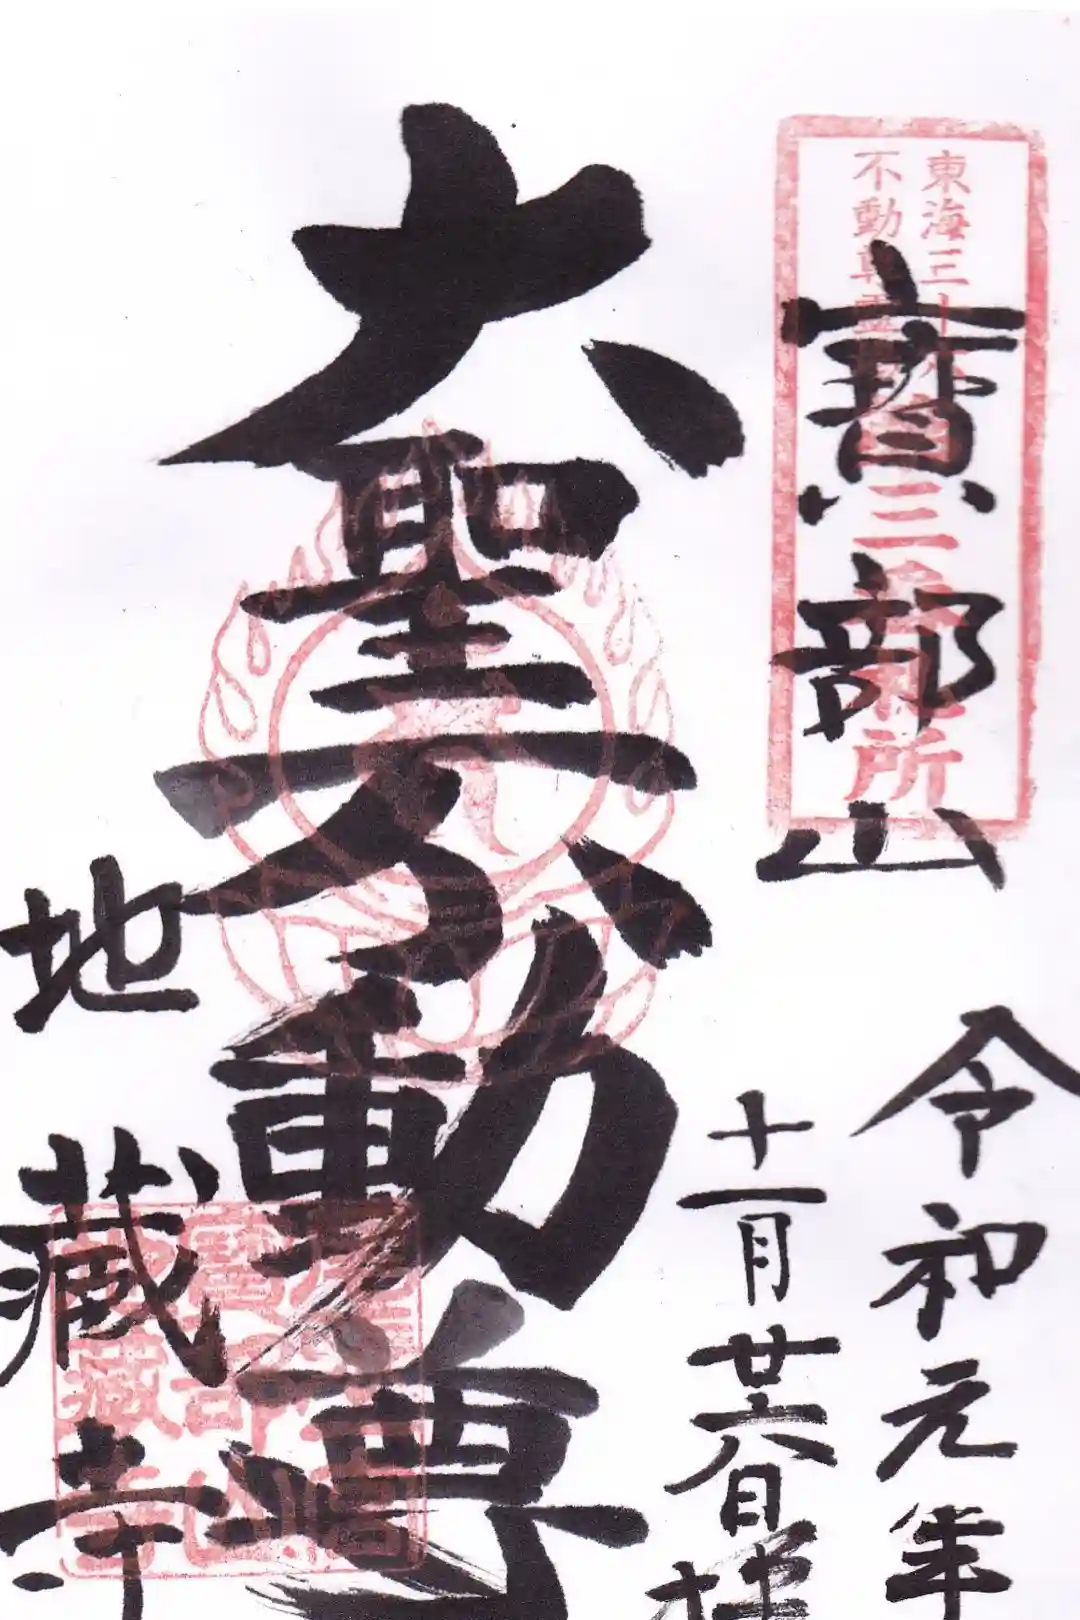 東海三十
不動尊霊
三番札所
寶部山
令和元年
十一月廿六日拝
大聖不動尊
地藏寺
寶部山
地藏寺